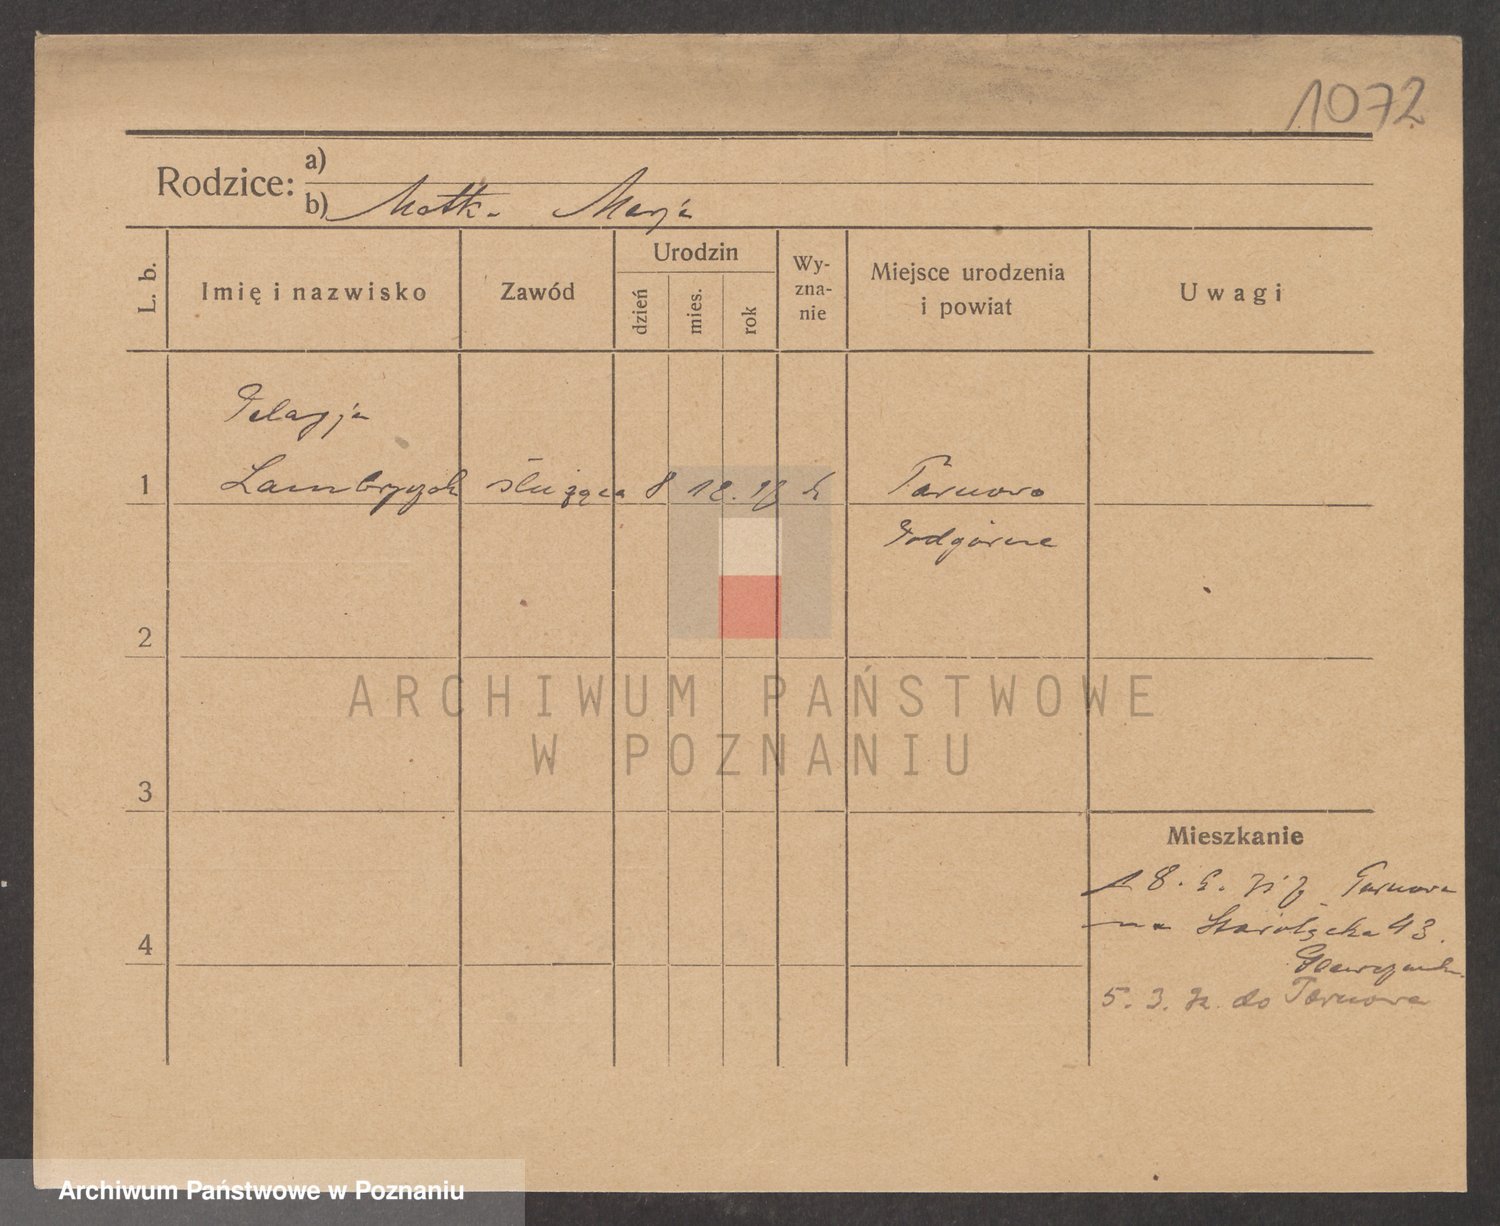 1072
Rodzice: a)
b) Matk. Marja
L. b.
Imię i nazwisko
Zawód
Urodzin
dzień
mies.
rok
Wy-
zna-
nie
Miejsce urodzenia
i powiat
Uwagi
Pelagja
1 służąca 8 12. Tarnowo
Podgórne
2
ARCHIWUM PAŃSTWOWE
W POZNANIU
3
Mieszkanie
18. Tarnowa
na Starołęcka 43.
4
5. 3. do Tarnowa
Archiwum Państwowe w Poznaniu